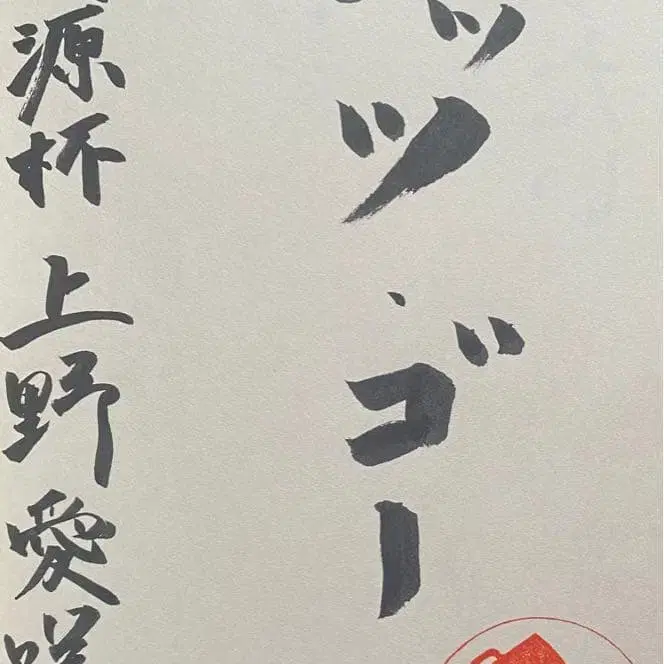 ッツ・ゴー
源杯 上野愛咲